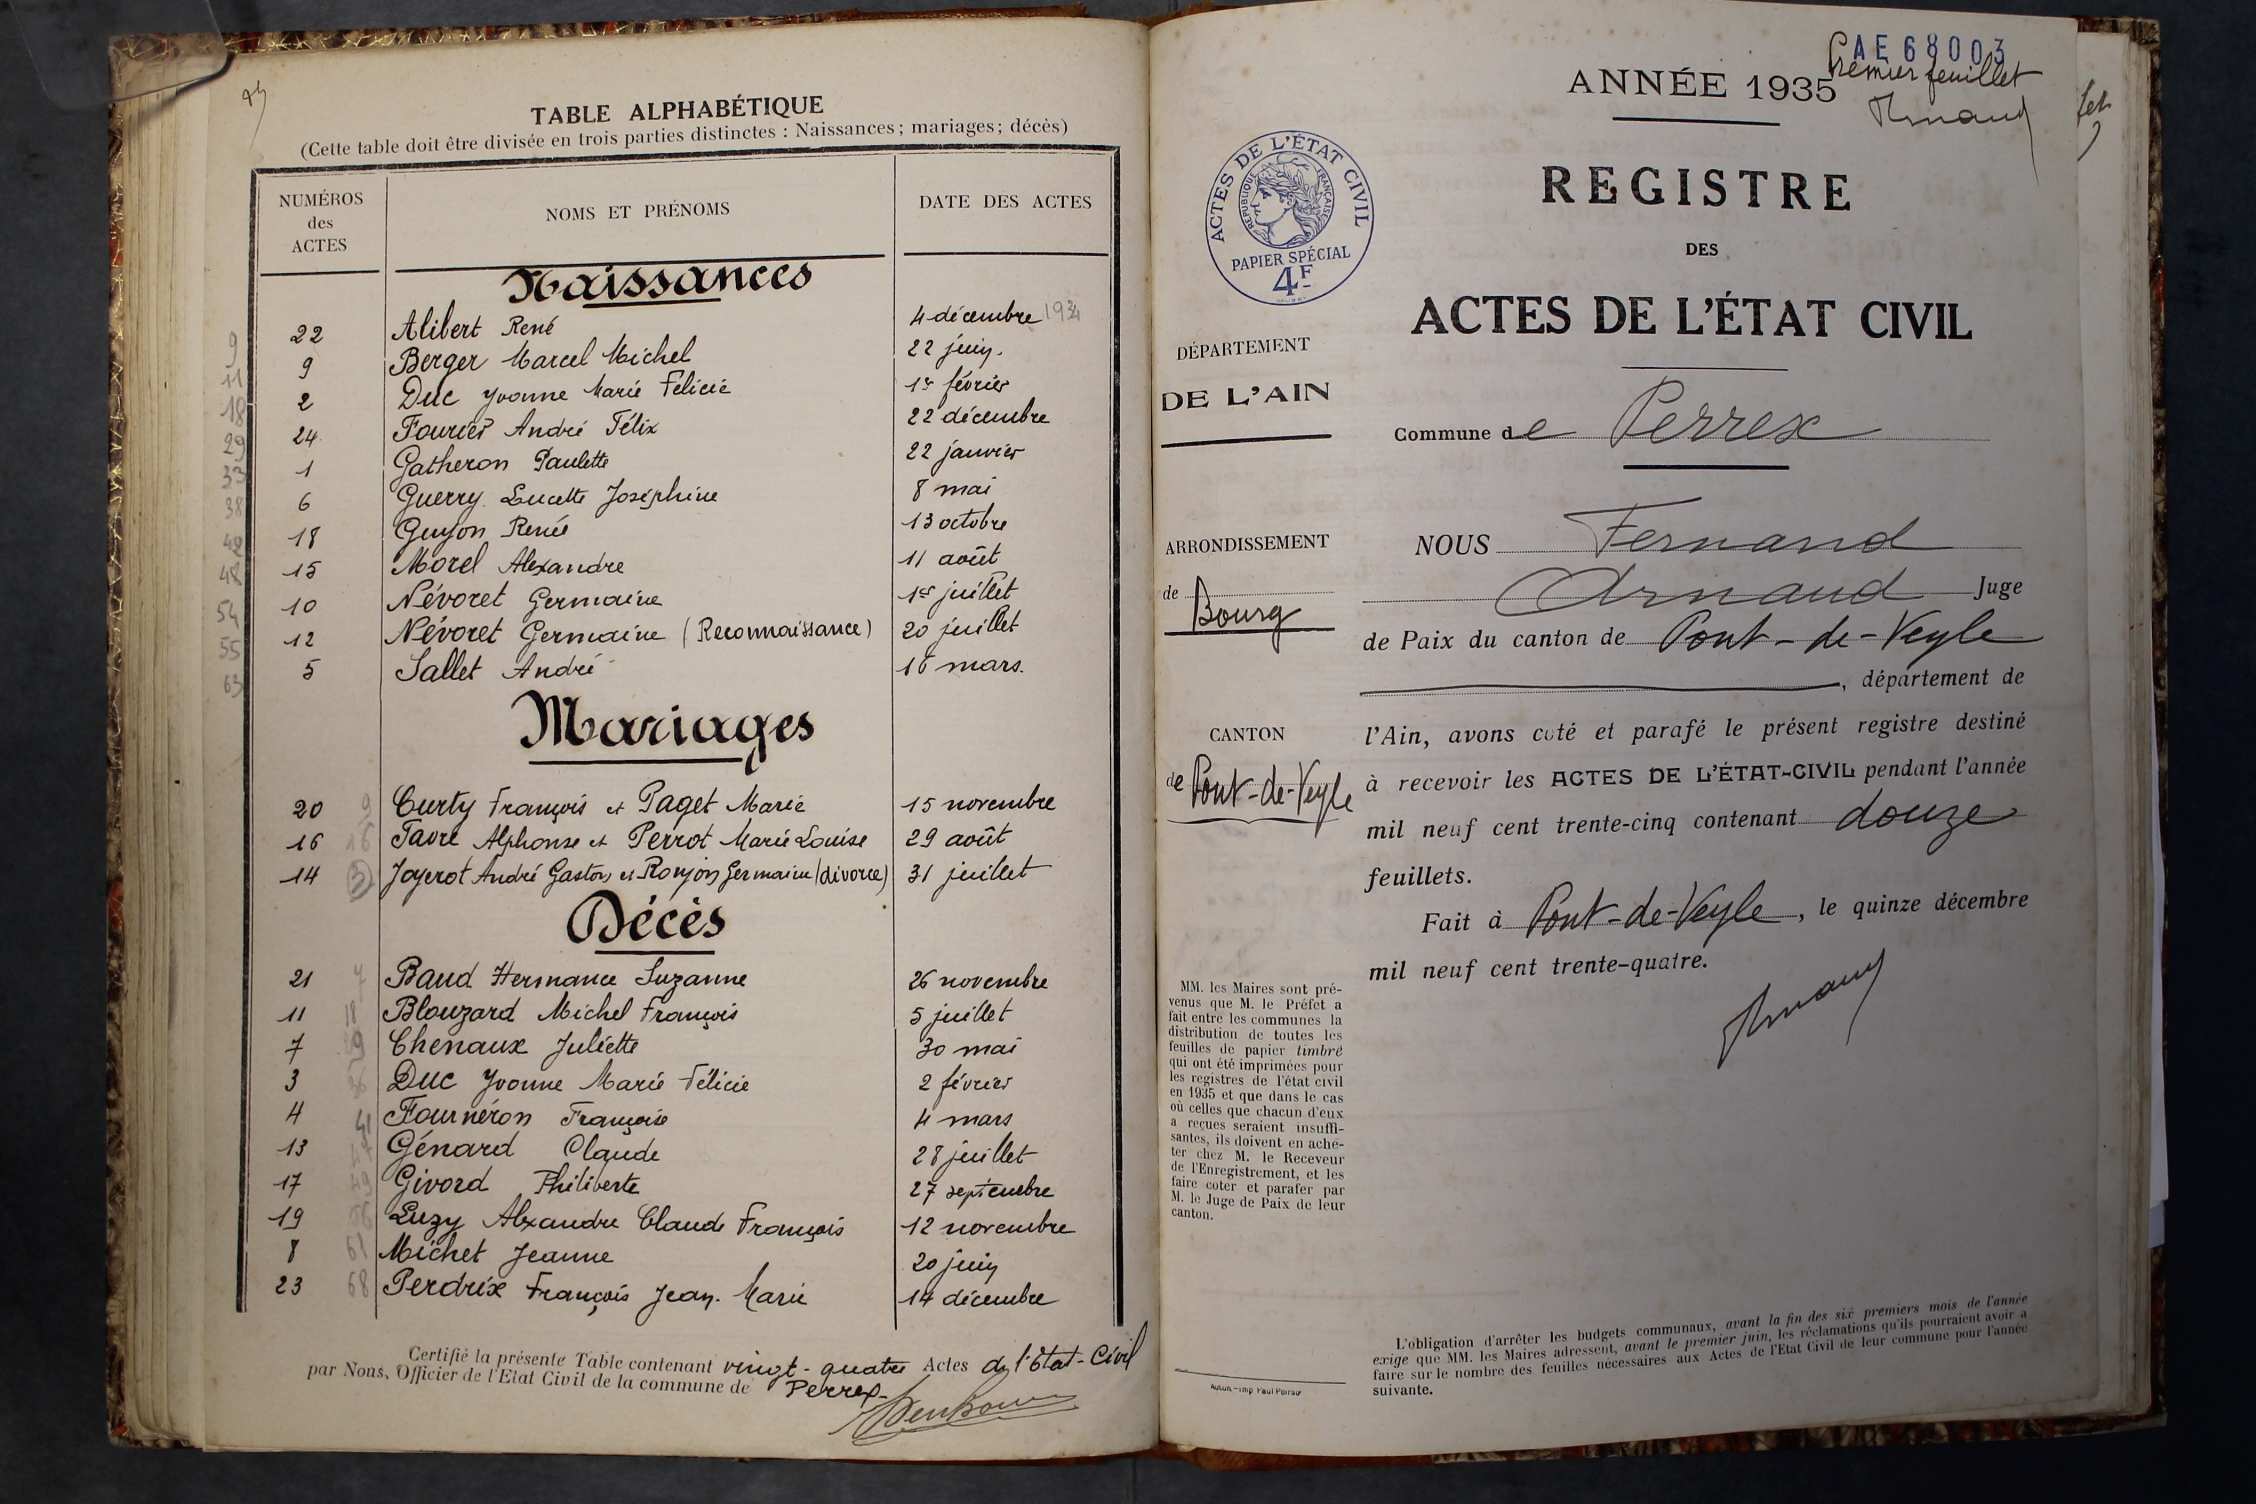 TABLE ALPHABÉTIQUE
(Cette table doit être divisée en trois parties distinctes : Naissances ; mariages ; décès)
NUMÉROS des ACTES NOMS ET PRÉNOMS DATE DES ACTES
Naissances
22 Alibert René 4 décembre 1934
9 9 Berger Marcel Michel 22 juin.
11 2 Duc Yvonne Marie Félicie 1er février
18 24 Fourier André Félix 22 décembre
29 1 Gatheron Paulette 22 janvier
33 6 Guerry Lucette Joséphine 8 mai
38 18 Guyon Renée 13 octobre
42 15 Morel Alexandre 11 août
48 10 Névoret Germaine 1er juillet
54 12 Névoret Germaine (Reconnaissance) 20 juillet
55 5 Sallet André 16 mars.
63
Mariages
20 9 Curty François et Paget Marie 15 novembre
16 16 Favre Alphonse et Perrot Marie Louise 29 août
14 Joyerot André Gaston et Ronjon Germaine (divorce) 31 juillet
Décès
21 Baud Hermance Suzanne 26 novembre
11 18 Blouzard Michel François 5 juillet
7 Chenaux Juliette 30 mai
3 36 Duc Yvonne Marie Félicie 2 février
4 41 Fournéron Françoise 4 mars
13 Génard Claude 28 juillet
17 49 Givord Philiberte 27 septembre
19 56 Luzy Alexandre Claude François 12 novembre
8 61 Michet Jeanne 20 juin
23 68 Perdrix François Jean-Marie 14 décembre
Certifié la présente Table contenant vingt-quatre Actes de l'Etat-Civil
par Nous, Officier de l'Etat Civil de la commune de Perrex
AE 68003
ANNÉE 1935
Premier feuillet
Arnaud
ACTES DE L'ÉTAT CIVIL
RÉPUBLIQUE FRANÇAISE
PAPIER SPÉCIAL
4F
REGISTRE
DES
ACTES DE L'ÉTAT CIVIL
DÉPARTEMENT
DE L'AIN
Commune de Perrex
ARRONDISSEMENT
de Bourg
NOUS Fernand
Arnaud Juge
de Paix du canton de Pont-de-Veyle
, département de
CANTON
de Pont-de-Veyle
l'Ain, avons coté et parafé le présent registre destiné
à recevoir les ACTES DE L'ÉTAT-CIVIL pendant l'année
mil neuf cent trente-cinq contenant douze
feuillets.
Fait à Pont-de-Veyle, le quinze décembre
mil neuf cent trente-quatre.
Arnaud
MM. les Maires sont pré-
venus que M. le Préfet a
fait entre les communes la
distribution de toutes les
feuilles de papier timbré
qui ont été imprimées pour
les registres de l'état civil
en 1935 et que dans le cas
où celles que chacun d'eux
a reçues seraient insuffi-
santes, ils doivent en ache-
ter chez M. le Receveur
de l'Enregistrement, et les
faire coter et parafer par
M. le Juge de Paix de leur
canton.
Autun.-Imp Paul Poirson
L'obligation d'arrêter les budgets communaux, avant la fin des six premiers mois de l'année
exige que MM. les Maires adressent, avant le premier juin, les réclamations qu'ils pourraient avoir à
faire sur le nombre des feuilles nécessaires aux Actes de l'Etat Civil de leur commune pour l'année
suivante.